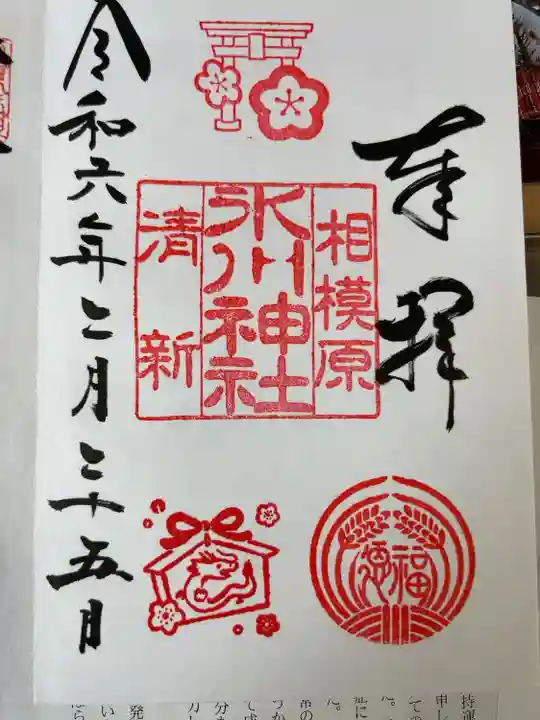 奉拝
相模原
氷川神社
清新
福徳
令和六年二月二十五日